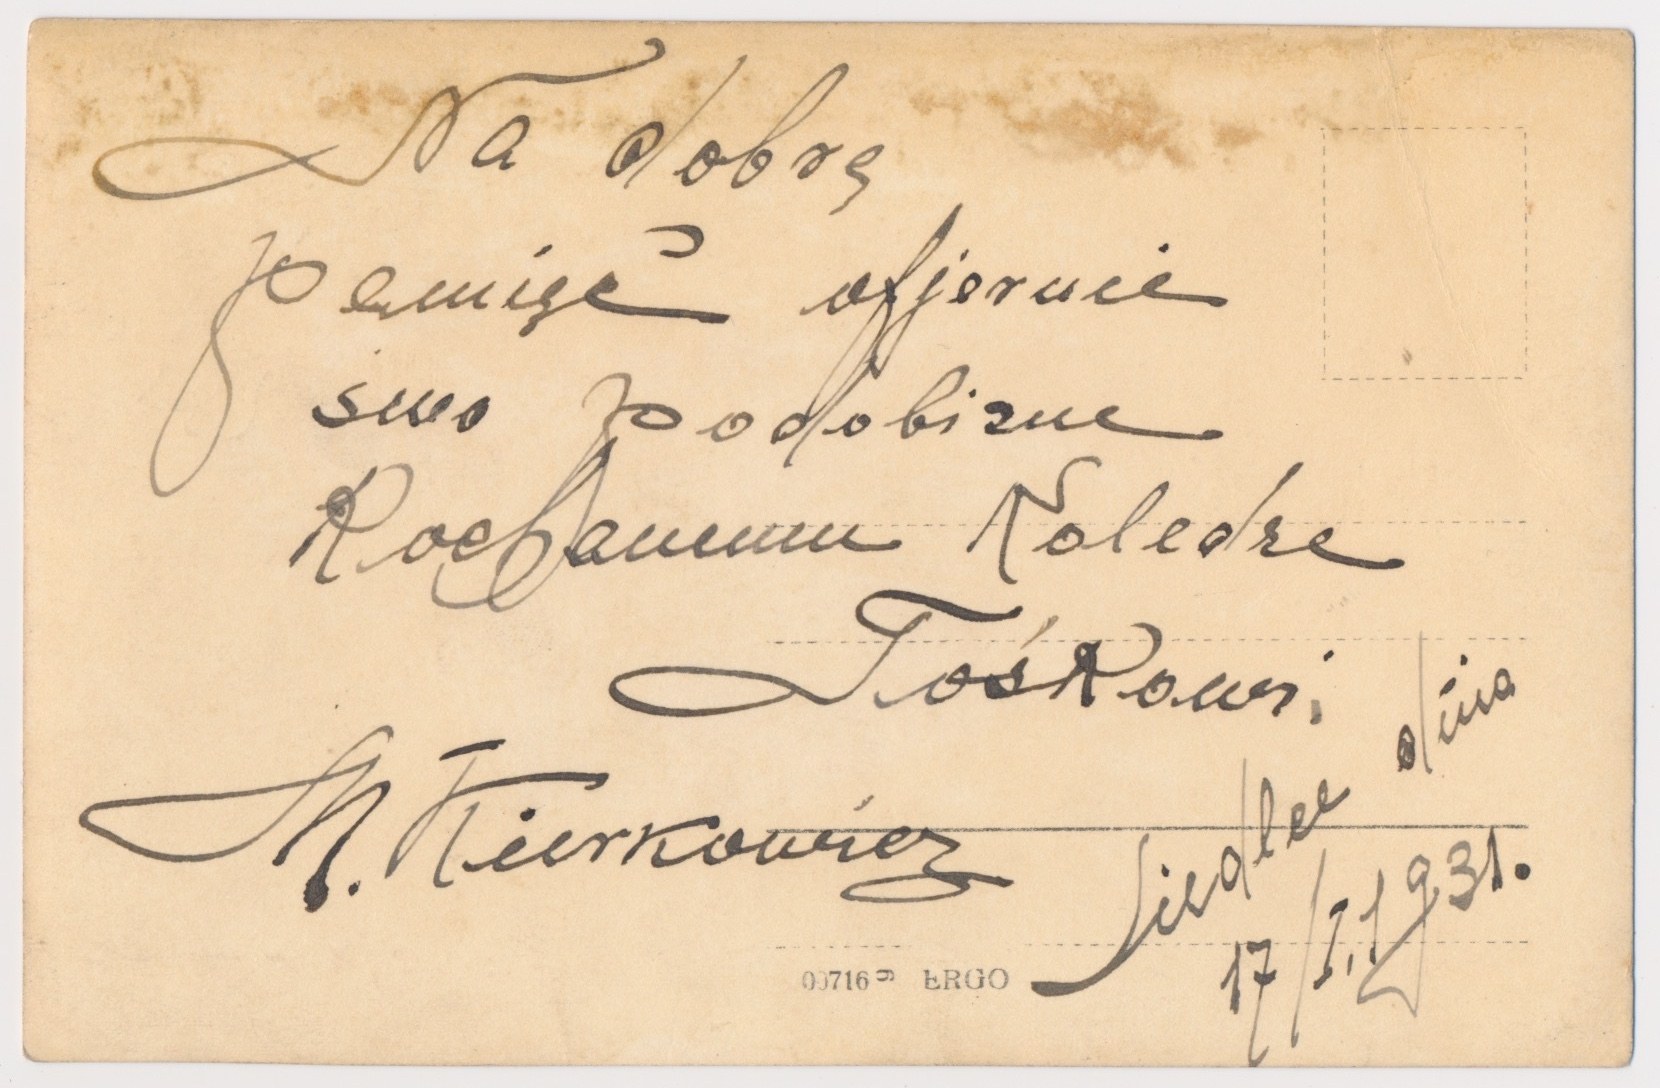 Na dobrą
Pamięć ofjeruie
swo podobizne
Kochanemu Koledze
Tośkowi
M. Kierkowicz
Siedlce dnia
17/I, 1931.
ERGO